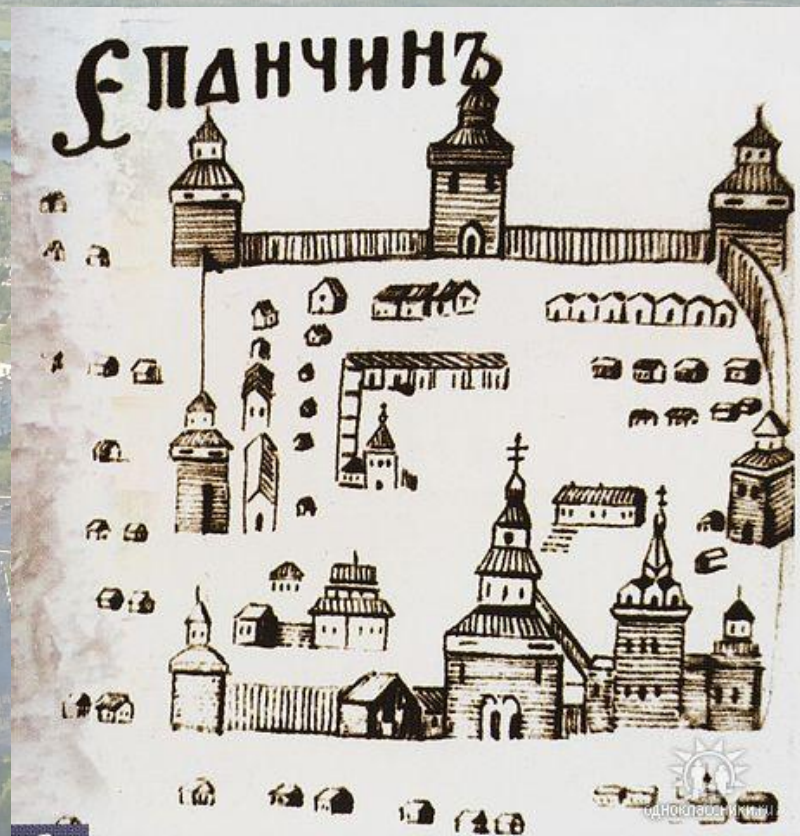 Епанчинъ
одноклассники.ru